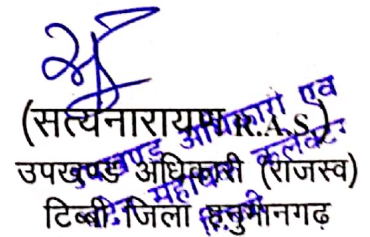 (सत्यनारायण R.A.S.)
उपखण्ड अधिकारी (राजस्व)
टिब्बी जिला हनुमानगढ़
उपखण्ड अधिकारी एवं
सहायक कलक्टर
टिब्बी